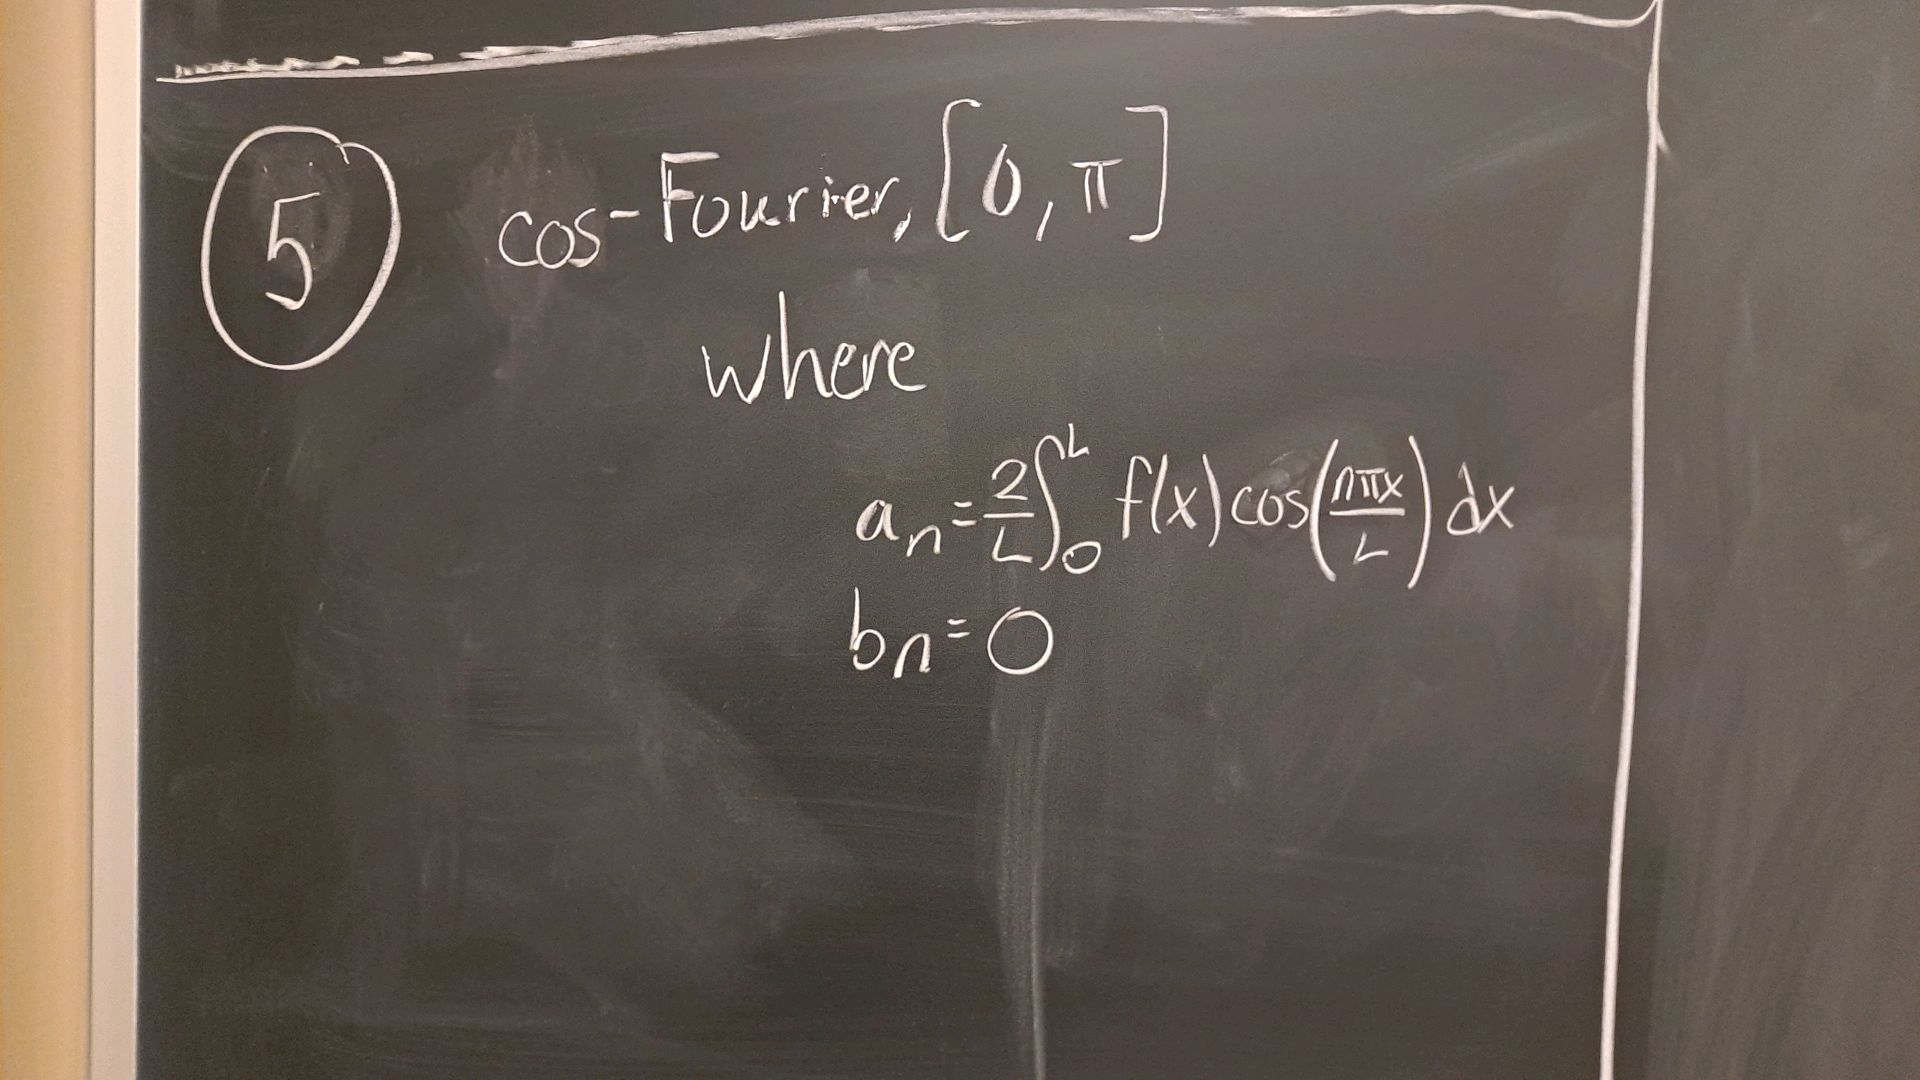 5 cos-Fourier, [0, π]
where
aₙ = 2/L ∫₀ᴸ f(x) cos(nπx/L) dx
bₙ = 0